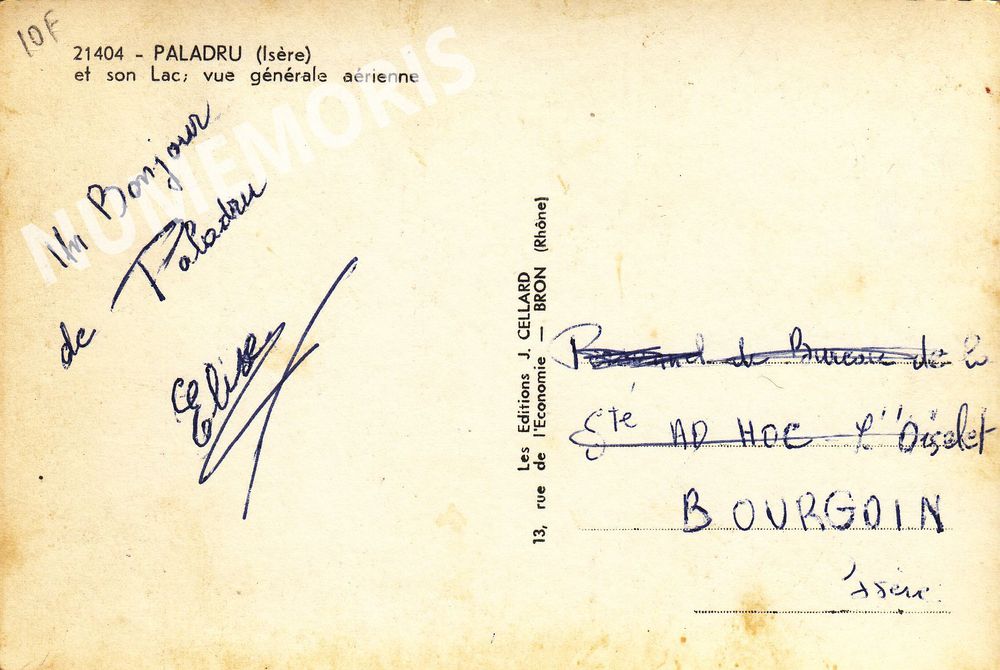 10F
21404 - PALADRU (Isère)
et son Lac; vue générale aérienne
NUMEMORIS
Un Bonjour
de Paladru
Elise
Les Editions J. CELLARD
13, rue de l'Economie — BRON (Rhône)
Personnel du Bureau de la
Sté AD HOC l'Oiselet
BOURGOIN
Isère